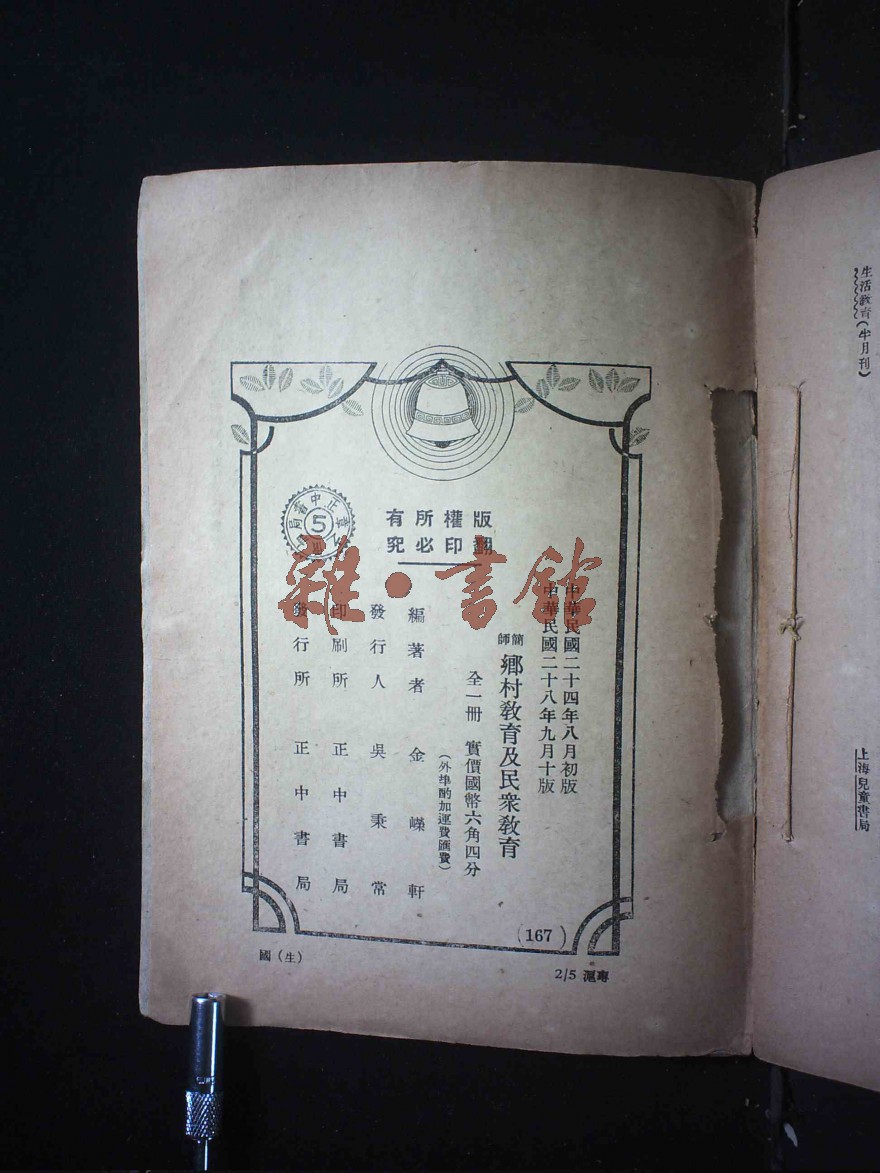 版權所有
翻印必究
中華民國二十四年八月初版
中華民國二十八年九月十版
簡師 鄉村敎育及民衆敎育
全一冊 實價國幣六角四分
(外埠酌加運費匯費)
編著者 金嶸軒
發行人 吳秉常
印刷所 正中書局
發行所 正中書局
正中書局
5
(167)
滬專 2/5
國(生)
生活敎育(半月刊)
上海兒童書局
雜·書館